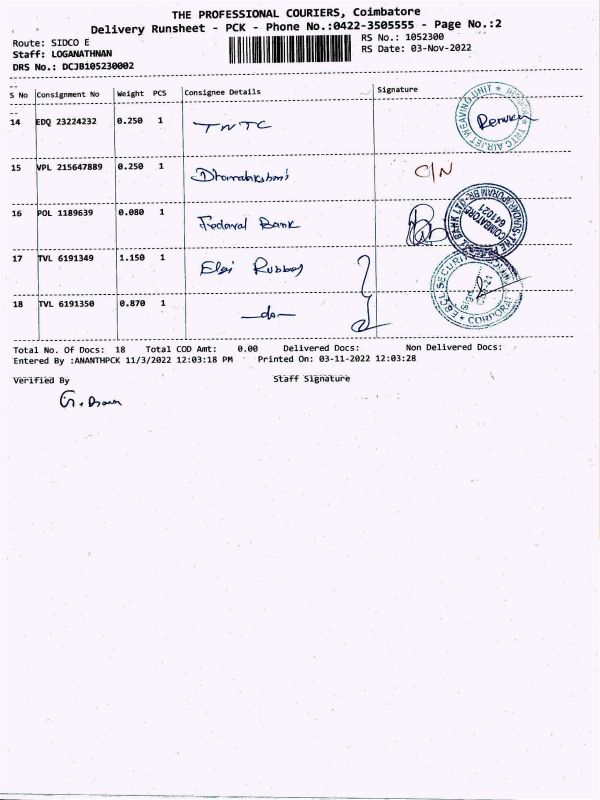 THE PROFESSIONAL COURIERS, Coimbatore
Delivery Runsheet - PCK - Phone No.:0422-3505555 - Page No.:2
Route: SIDCO E RS No.: 1052300
Staff: LOGANATHNAN RS Date: 03-Nov-2022
DRS No.: DCJB105230002
S No Consignment No Weight PCS Consignee Details Signature
14 EDQ 23224232 0.250 1 TNTC
15 VPL 215647889 0.250 1 C/N
16 POL 1189639 0.080 1 Federal Bank
17 TVL 6191349 1.150 1
18 TVL 6191350 0.870 1 -do-
Total No. Of Docs: 18 Total COD Amt: 0.00 Delivered Docs: Non Delivered Docs:
Entered By :ANANTHPCK 11/3/2022 12:03:18 PM Printed On: 03-11-2022 12:03:28
Verified By Staff Signature